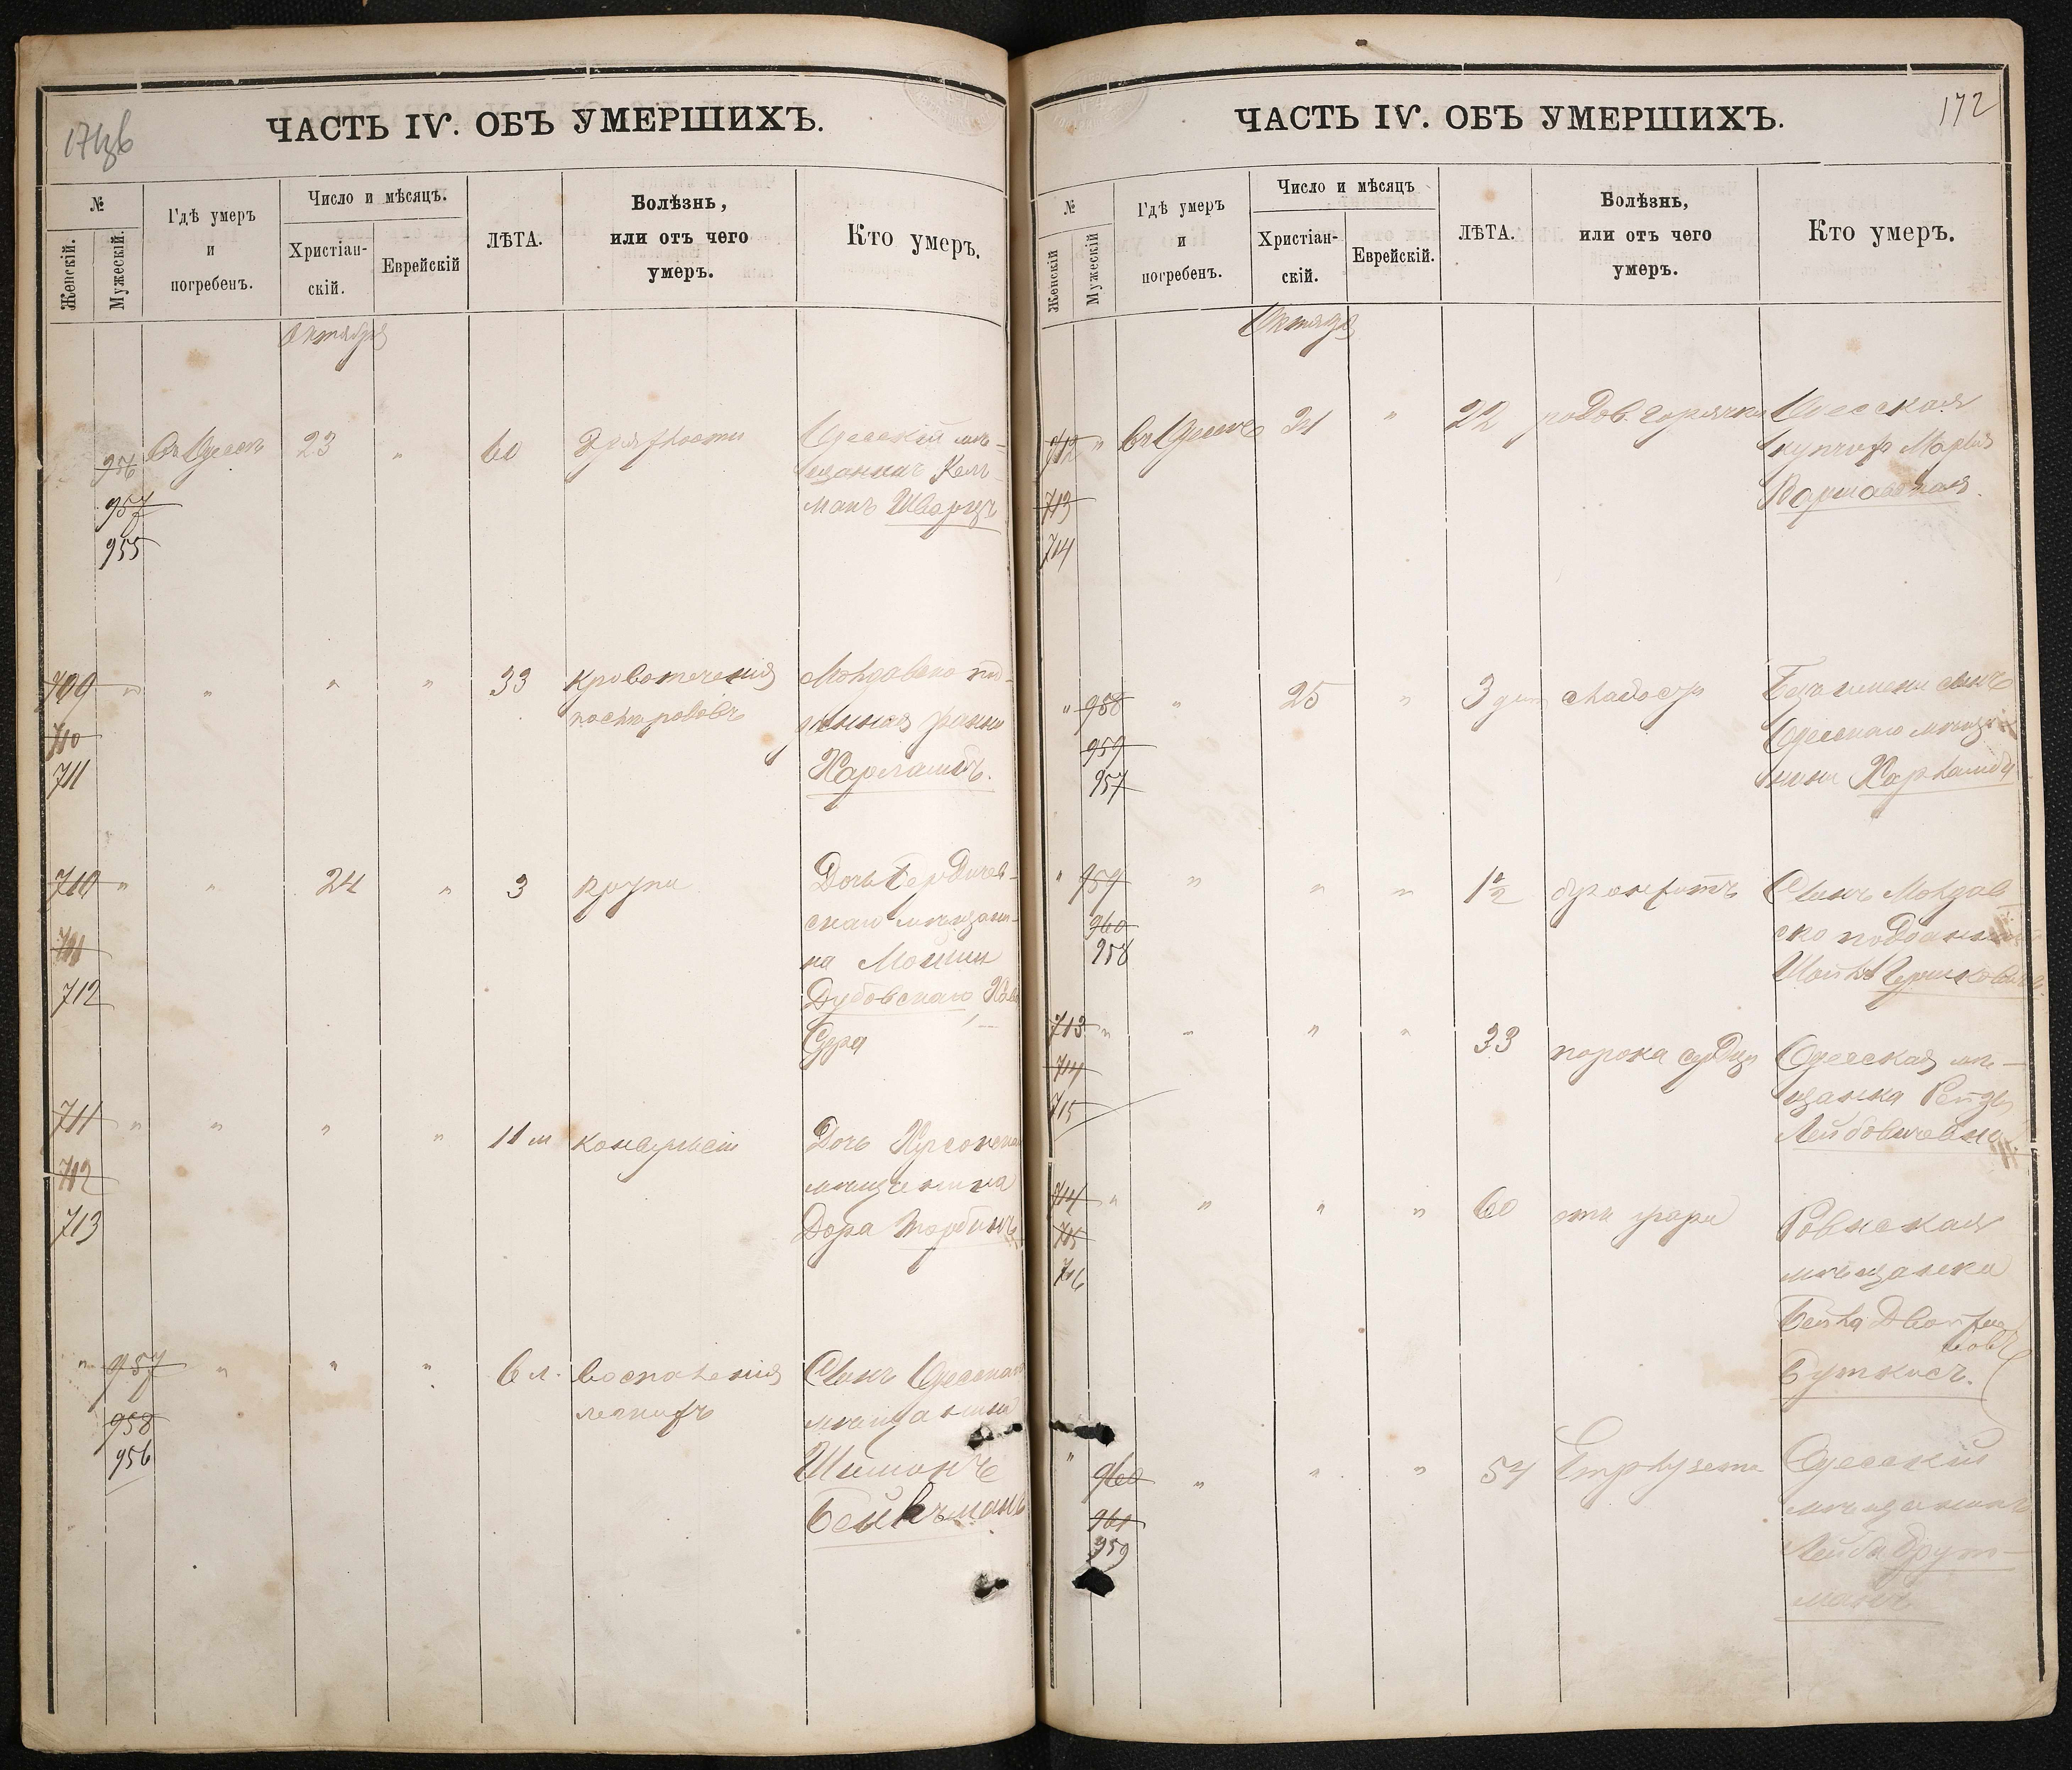 171об
ЧАСТЬ IV. ОБЪ УМЕРШИХЪ.
№
Женскій.
Мужескій.
Гдѣ умеръ
и
погребенъ.
Число и мѣсяцъ.
Христіан-
скій.
Еврейскій
ЛѢТА.
Болѣзнь,
или отъ чего
умеръ.
Кто умеръ.
Октября
956
957
955
въ Одессѣ
23
"
60
дряхлости
Одесскій мѣ-
щанинъ Кел-
манъ Шварцъ
709
710
711
"
"
"
"
33
кровотеченія
Молдавско под-
данная
Харлашъ.
710
711
712
"
"
24
"
3
крупа
Дочь Бердичев-
скаго мѣщани-
на Мошки
Дубовскаго
Сура
711
712
713
"
"
"
"
11 м
конвульсіи
Дочь Херсонска
мѣщанина
Дора
"
957
958
956
"
"
"
6 л.
воспаленія
легкихъ
Сынъ Одесскаго
мѣщанина
Шимонъ
Бейкъманъ
172
ЧАСТЬ IV. ОБЪ УМЕРШИХЪ.
№
Женскій
Мужескій
Гдѣ умеръ
и
погребенъ.
Число и мѣсяцъ
Христіан-
скій.
Еврейскій.
ЛѢТА.
Болѣзнь,
или отъ чего
умеръ.
Кто умеръ.
Октября
712
713
714
"
въ Одессѣ
24
"
22
родов. горячки
Одесская
Марія
Варшавская.
"
958
959
957
"
25
"
3 дня
слабости
Безъ имени сынъ
Одесскаго мѣща-
нина
"
959
960
958
"
"
"
1 1/2
бронхитъ
Сынъ Молдав
ско подданнаго
Гершковичъ.
713
714
715
"
"
"
"
33
порока сердца
Одесская мѣ-
щанка Рейзя
Лейбовичевна
714
715
716
"
"
"
"
60
отъ удара
Ровнская
мѣщанка
Бейла Двойра
Буткисъ.
"
960
961
959
"
"
"
54
Emphysema
Одесскій
мѣщанинъ
Лейба Друт-
манъ